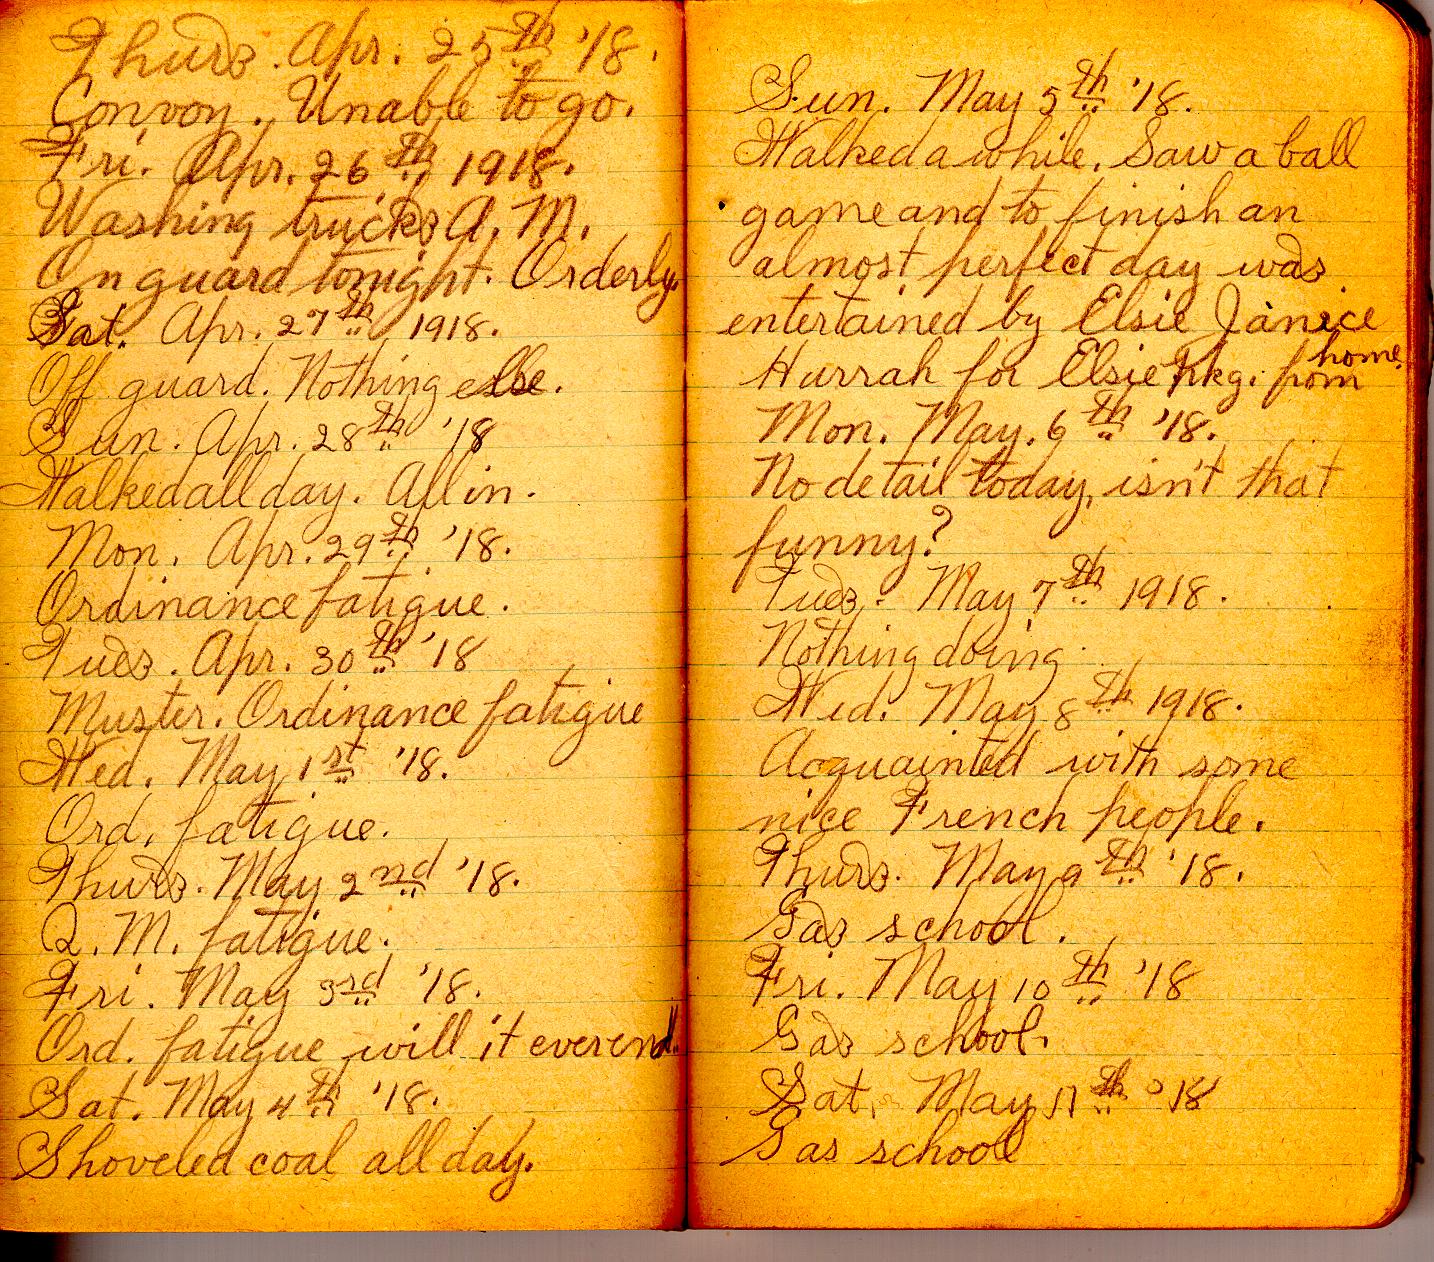 Thurs. Apr. 25th '18.
Convoy. Unable to go.
Fri. Apr. 26th 1918.
Washing trucks A. M.
On guard tonight. Orderly.
Sat. Apr. 27th 1918.
Off guard. Nothing else.
Sun. Apr. 28th '18
Walked all day. All in.
Mon. Apr. 29th '18.
Ordinance fatigue.
Tues. Apr. 30th '18
Muster. Ordinance fatigue
Wed. May 1st '18.
Ord. fatigue.
Thurs. May 2nd '18.
Q. M. fatigue.
Fri. May 3rd '18.
Ord. fatigue will it ever end.
Sat. May 4th '18.
Shoveled coal all day.
Sun. May 5th '18.
Walked a while. Saw a ball
game and to finish an
almost perfect day was
entertained by Elsie Janice
Hurrah for Elsie Pkg. from home.
Mon. May. 6th '18.
No detail today, isn't that
funny?
Tues. May 7th 1918.
Nothing doing.
Wed. May 8th 1918.
Acquainted with some
nice French people.
Thurs. May 9th '18.
Gas school.
Fri. May 10th '18
Gas school.
Sat. May 11th '18
Gas school